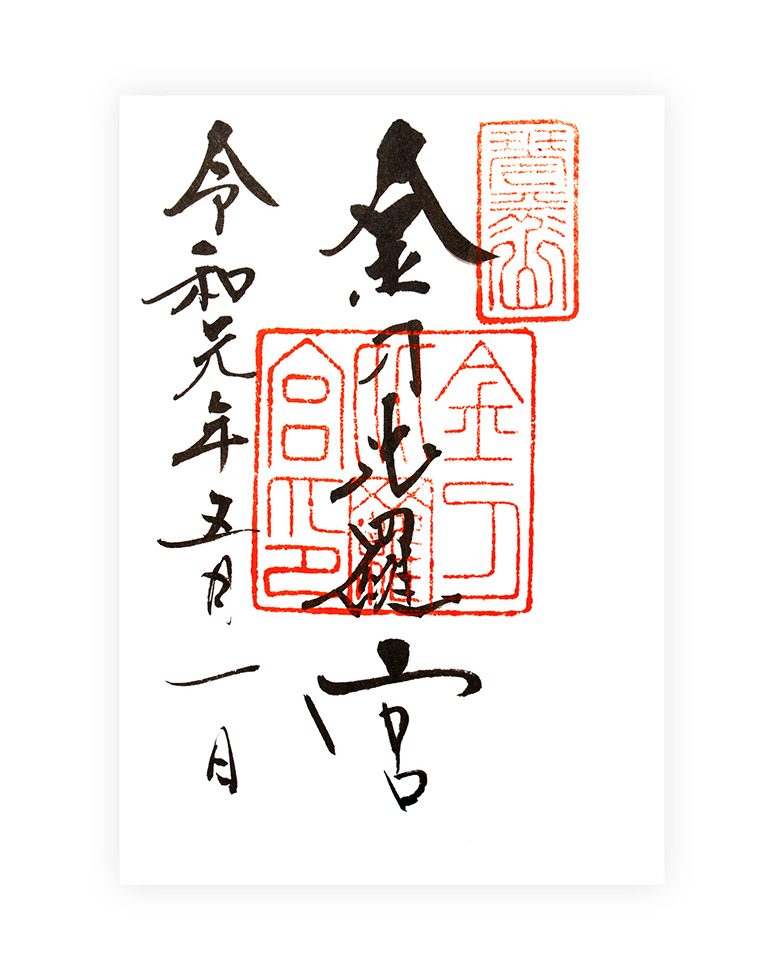 金刀比羅宮
金刀
比羅
宮之印
令和元年五月一日